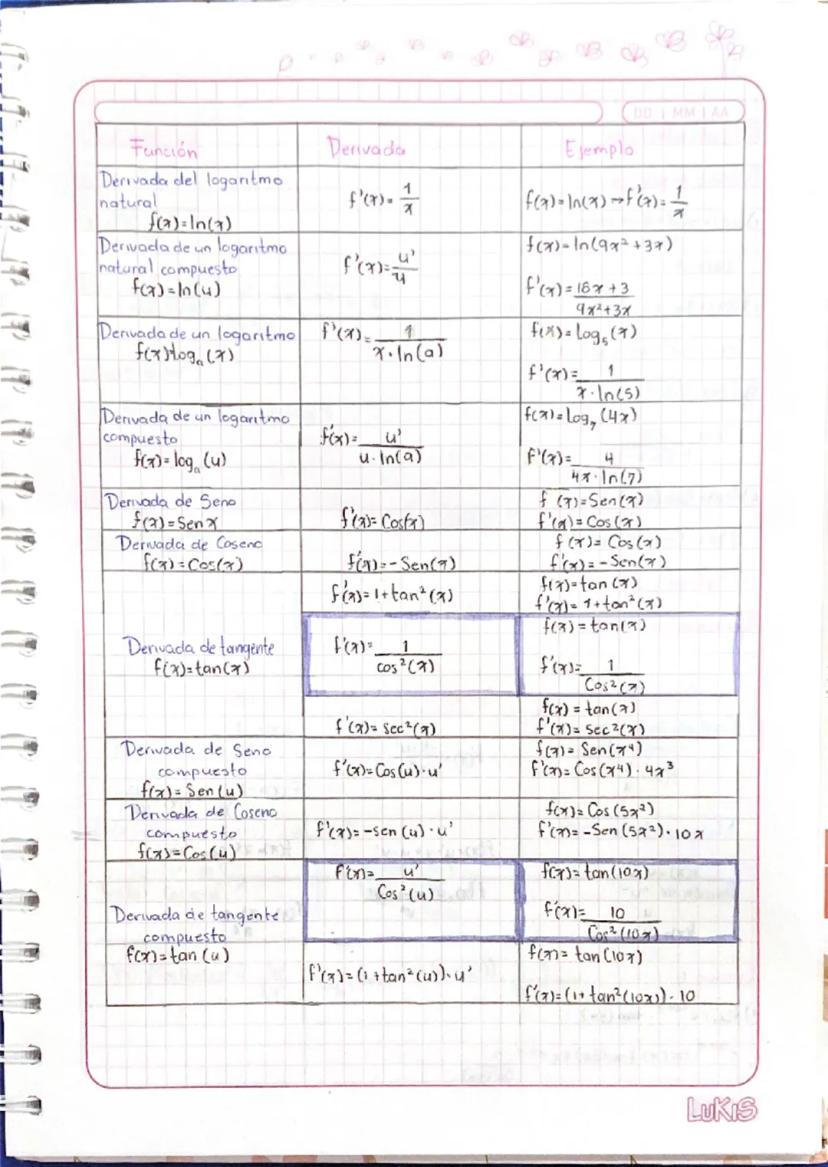 DD | MM | AA
Función Derivada Ejemplo
Derivada del logaritmo
natural
f(x)=ln(x)
f'(x)= 1/x
f(x)=ln(x)→f'(x)= 1/x
Derivada de un logaritmo
natural compuesto
f(x)=ln(u)
f'(x)= u'/u
f(x)=ln(9x²+3x)
f'(x)= 18x+3/9x²+3x
Derivada de un logaritmo
f(x)=logₐ(x)
f'(x)= 1/x·ln(a)
f(x)=log₅(x)
f'(x)= 1/x·ln(5)
Derivada de un logaritmo
compuesto
f(x)=logₐ(u)
f'(x)= u'/u·ln(a)
f(x)=log₇(4x)
f'(x)= 4/4x·ln(7)
Derivada de Seno
f(x)=Sen x
f'(x)=Cos(x)
f(x)=Sen(x)
f'(x)=Cos(x)
Derivada de Coseno
f(x)=Cos(x)
f'(x)=-Sen(x)
f(x)=Cos(x)
f'(x)=-Sen(x)
Derivada de tangente
f(x)=tan(x)
f'(x)=1+tan²(x)
f(x)=tan(x)
f'(x)=1+tan²(x)
f'(x)= 1/cos²(x)
f(x)=tan(x)
f'(x)= 1/Cos²(x)
f'(x)=sec²(x)
f(x)=tan(x)
f'(x)=sec²(x)
Derivada de Seno
compuesto
f(x)=Sen(u)
f'(x)=Cos(u)·u'
f(x)=Sen(x⁴)
f'(x)=Cos(x⁴)·4x³
Derivada de Coseno
compuesto
f(x)=Cos(u)
f'(x)=-sen(u)·u'
f(x)=Cos(5x²)
f'(x)=-Sen(5x²)·10x
Derivada de tangente
compuesto
f(x)=tan(u)
f'(x)= u'/Cos²(u)
f(x)=tan(10x)
f'(x)= 10/Cos²(10x)
f'(x)=(1+tan²(u))·u'
f(x)=tan(10x)
f'(x)=(1+tan²(10x))·10
LUKIS